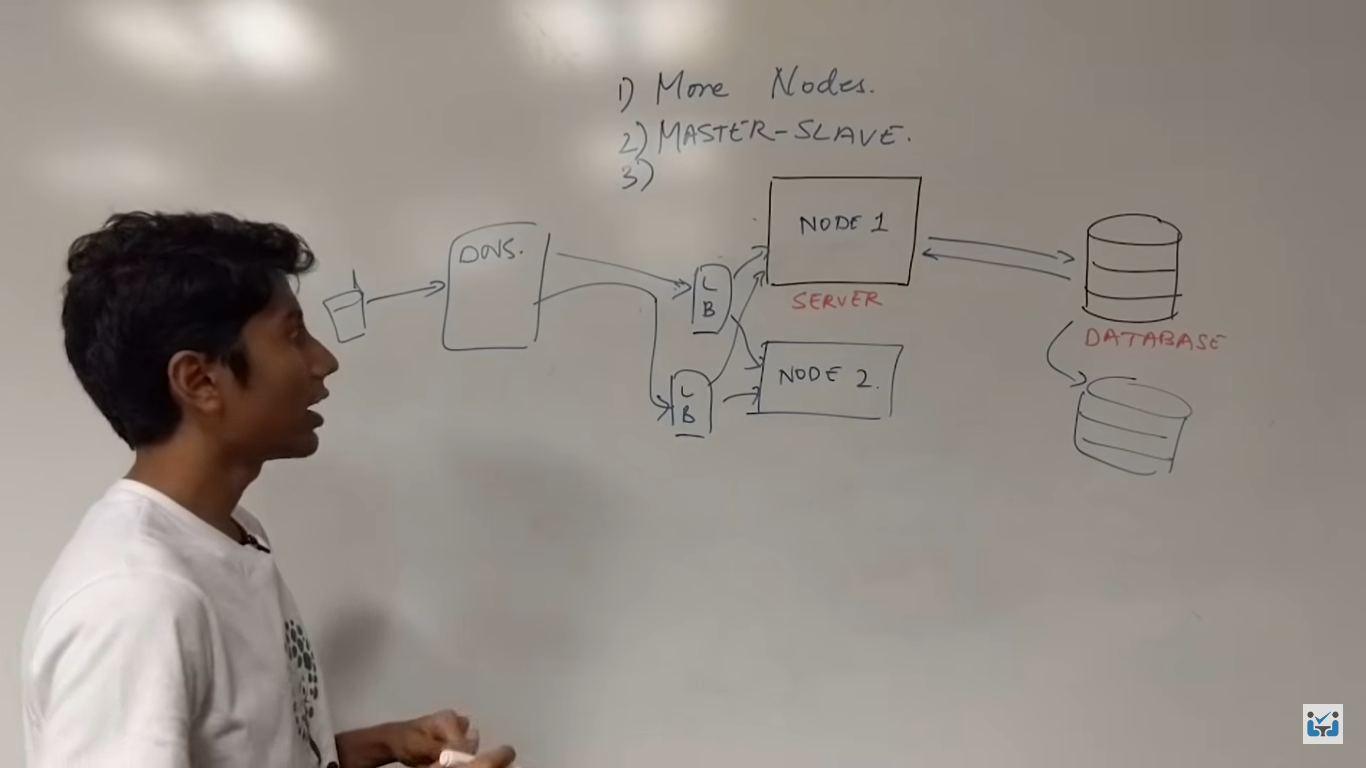 1) More Nodes.
2) MASTER-SLAVE.
3)
DNS.
L
B
L
B
NODE 1
SERVER
NODE 2.
DATABASE